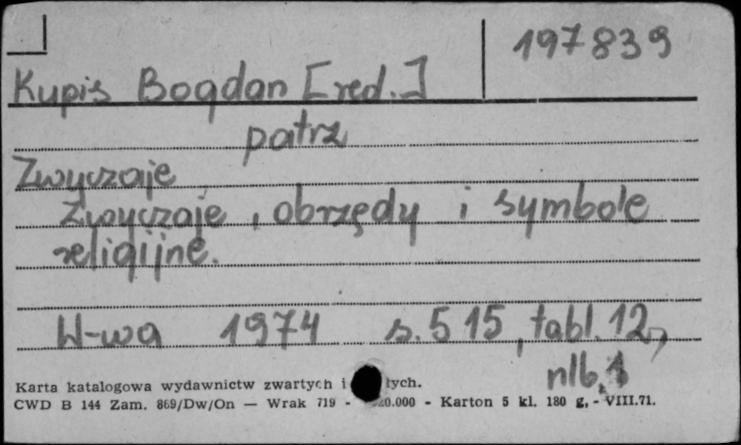 197839
Kupis Bogdan [red.]
patrz
Zwyczaje
Zwyczaje, obrzędy i symbole
religijne.
W-wa 1974 s. 515, tabl. 12,
nlb. 1
Karta katalogowa wydawnictw zwartych i
CWD B 144 Zam. 869/Dw/On — Wrak 719 - - Karton 5 kl. 180 g. - VIII.71.